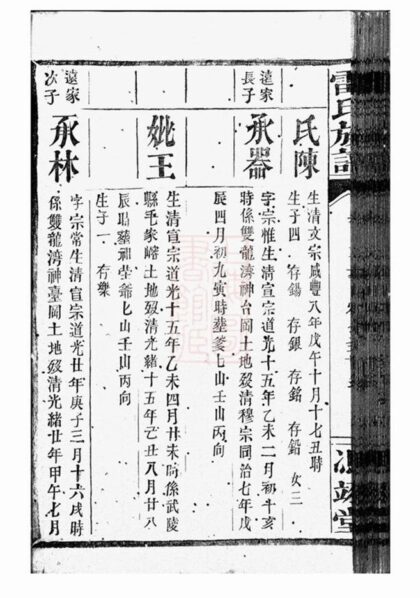 雷氏族譜
馮翊堂
氏陳
生清文宗咸豐八年戊午十月十七丑時
生子四 存錫 存銀 存銘 存鉛 女三
遠家
長子
承器
字宗惟生清宣宗道光十五年乙未二月初十亥
時係雙龍神台岡土地歿清穆宗同治七年戊
辰四月初九寅時葬山壬山丙向
妣王
生清宣宗道光十五年乙未四月廿未時係武陵
縣毛家土地歿清光緒十五年己丑八月廿八
辰時葬神山壬山丙向
生子一 存樂
遠家
次子
承林
字宗常生清宣宗道光廿年庚子三月十六戌時
係雙龍神臺岡土地歿清光緒廿年甲午七月